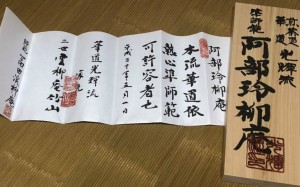 阿部玲柳庵
本流華道依
熱心準師範
可許容者也
平成二十年五月一日
華道光輝流
家元
二世 雲柳庵竹山
準師範
華道 光輝流
阿部玲柳庵